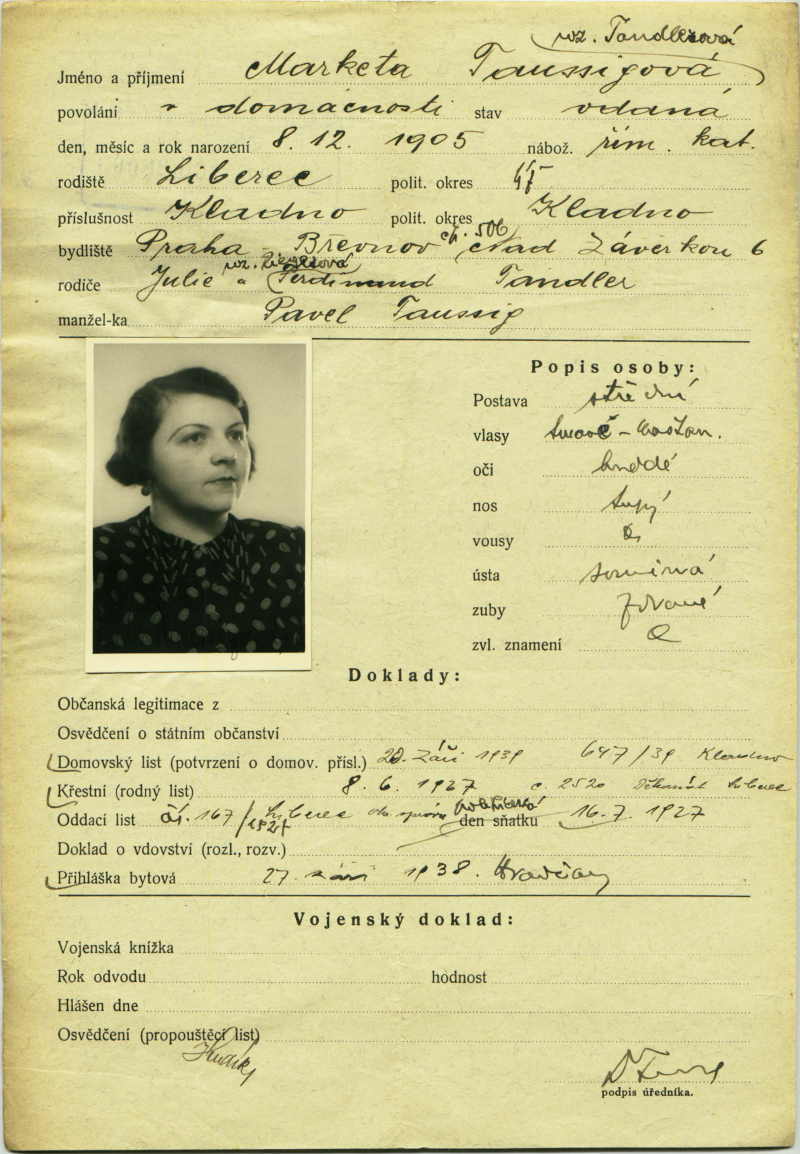 roz. Tandlerová
Jméno a příjmení Marketa Taussigová
povolání v domácnosti stav vdaná
den, měsíc a rok narození 8. 12. 1905 nábož. řím. kat.
rodiště Liberec polit. okres
příslušnost Kladno polit. okres Kladno
bydliště Praha - Břevnov čp. 506, Nad Závěrkou 6
rodiče Julie a Ferdinand Tandler
manžel-ka Pavel Taussig
Popis osoby:
Postava střední
vlasy tmavě - kaštan.
oči hnědé
nos tupý
vousy
ústa souměrná
zuby zdravé
zvl. znamení
Doklady:
Občanská legitimace z
Osvědčení o státním občanství
Domovský list (potvrzení o domov. přísl.) 20. září 1939 647/39 Kladno
Křestní (rodný list) 8. 6. 1927 č. 2520 Děkanát Liberec
Oddací list čís. 167/1927 Liberec den sňatku 16. 7. 1927
Doklad o vdovství (rozl., rozv.)
Přihláška bytová 27. září 1938. Hradčany
Vojenský doklad:
Vojenská knížka
Rok odvodu hodnost
Hlášen dne
Osvědčení (propouštěcí list)
podpis úředníka.